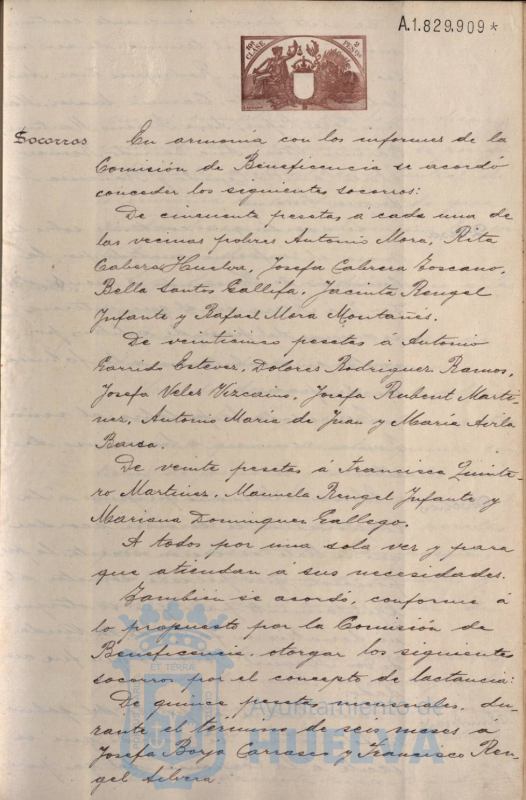 A.1.829.909*
10ª CLASE
2 PESETAS
Socorros
En armonía con los informes de la
Comisión de Beneficencia se acordó
conceder los siguientes socorros:
De cincuenta pesetas á cada una de
las vecinas pobres Antonio Mora, Rita
Cabeza Huelva, Josefa Cabrera Toscano,
Bella Santos Gallifa, Jacinta Rengel
Infante y Rafael Mora Montañés.
De veinticinco pesetas á Antonio
Garrido Estevez, Dolores Rodriguez Ramos,
Josefa Velez Vizcaino, Josefa Rubent Marti-
nez, Antonio Maria de Juan y María Avila
Barco.
De veinte pesetas á Francisca Quinte-
ro Martinez, Manuela Rengel Infante y
Mariana Dominguez Gallego.
A todos por una sola vez y para
que atiendan á sus necesidades.
También se acordó, conforme á
lo propuesto por la Comisión de
Beneficencia, otorgar los siguientes
socorros por el concepto de lactancia:
De quince pesetas mensuales, du-
rante el término de seis meses á
Josefa Borja Carrasco y Francisco Ren-
gel Silvera.
Ayuntamiento de
HUELVA